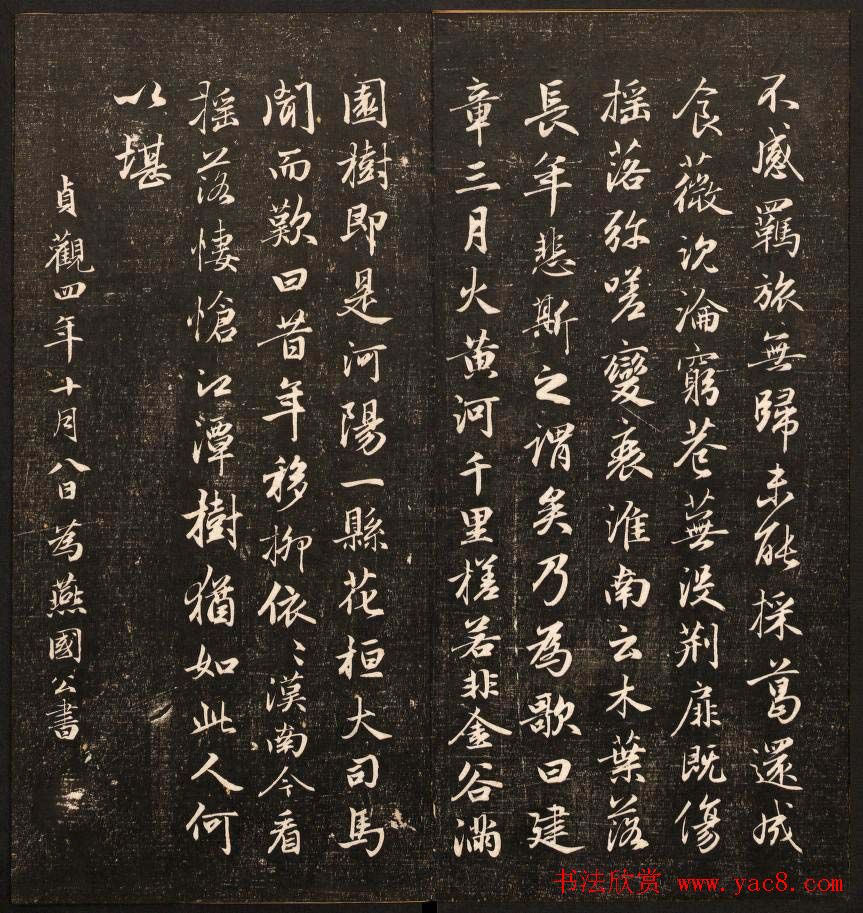 不感羈旅無歸未能採葛還成
食薇沉淪窮巷蕪没荆扉既傷
摇落弥嗟變衰淮南云木葉落
長年悲斯之謂矣乃為歌曰建
章三月火黄河千里槎若非金谷滿
園樹即是河陽一縣花桓大司馬
聞而歎曰昔年移柳依〻漢南今看
摇落悽愴江潭樹猶如此人何
以堪
貞觀四年十月八日為燕國公書
书法欣赏 www.yac8.com